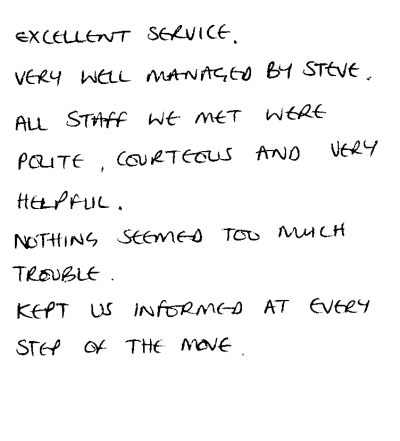 EXCELLENT SERVICE.
VERY WELL MANAGED BY STEVE.
ALL STAFF WE MET WERE
POLITE, COURTEOUS AND VERY
HELPFUL.
NOTHING SEEMED TOO MUCH
TROUBLE.
KEPT US INFORMED AT EVERY
STEP OF THE MOVE.